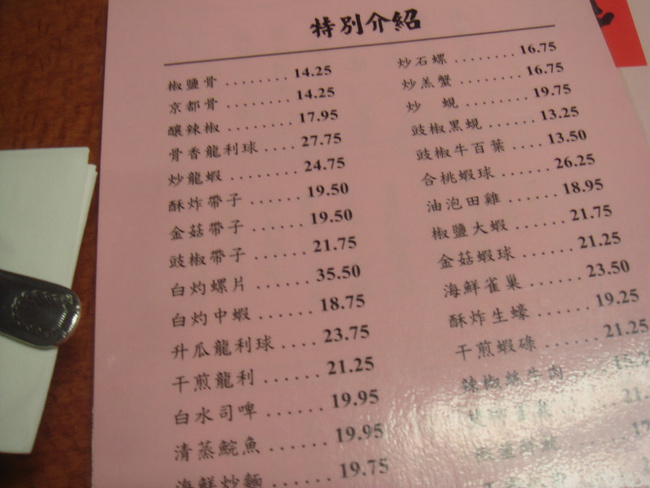 特別介紹
椒鹽骨 ........ 14.25
京都骨 ........ 14.25
釀辣椒 ........ 17.95
骨香龍利球 .... 27.75
炒龍蝦 ........ 24.75
酥炸帶子 ...... 19.50
金菇帶子 ...... 19.50
豉椒帶子 ...... 21.75
白灼螺片 ...... 35.50
白灼中蝦 ...... 18.75
升瓜龍利球 .... 23.75
干煎龍利 ...... 21.25
白水司啤 ...... 19.95
清蒸鯇魚 ...... 19.95
海鮮炒麵 ...... 19.75
炒石螺 ........ 16.75
炒羔蟹 ........ 16.75
炒 蜆 ........ 19.75
豉椒黑蜆 ...... 13.25
豉椒牛百葉 .... 13.50
合桃蝦球 ...... 26.25
油泡田雞 ...... 18.95
椒鹽大蝦 ...... 21.75
金菇蝦球 ...... 21.25
海鮮雀巢 ...... 23.50
酥炸生蠔 ...... 19.25
干煎蝦碌 ...... 21.25
辣椒 牛肉